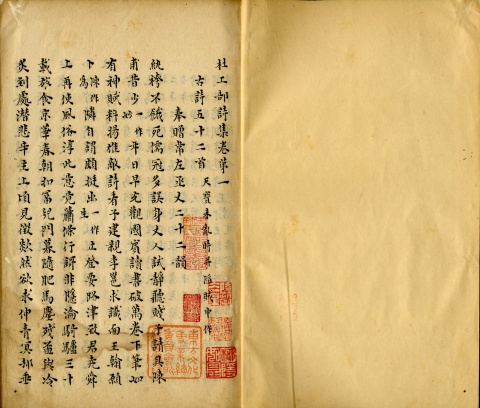 杜工部詩集卷第一
古詩五十二首 天寶未亂時并陷賊中作
奉贈韋左丞丈二十二韻
紈袴不餓死儒冠多誤身丈人試靜聽賤子請具陳
甫昔少年日早充觀國賓讀書破萬卷下筆如
有神賦料揚雄敵詩看子建親李邕求識面王翰願
卜隣自謂頗挺出一作立登要路津致君堯舜
上再使風俗淳此意竟蕭條行歌非隱淪騎驢三十
載旅食京華春朝扣富兒門暮隨肥馬塵殘盃與冷
炙到處潛悲辛主上頃見徵歘然欲求伸青冥却垂